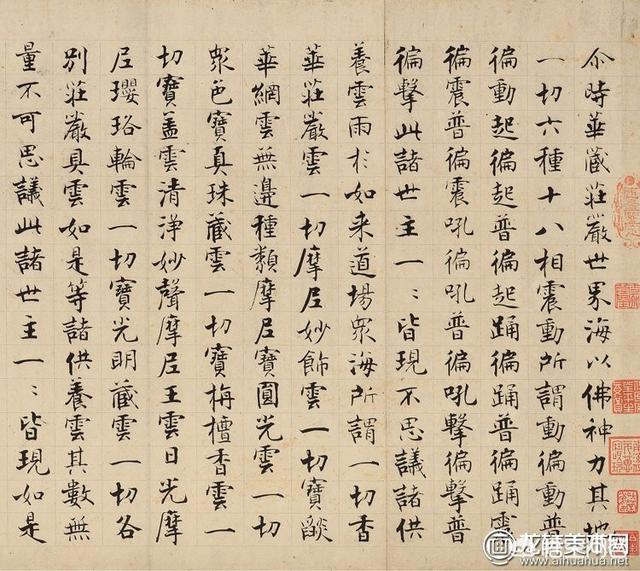 尒時華藏莊嚴世界海以佛神力其地
一切六種十八相震動所謂動徧動普
徧動起徧起普徧起踊徧踊普徧踊震
徧震普徧震吼徧吼普徧吼擊徧擊普
徧擊此諸世主一〻皆現不思議諸供
養雲雨於如来道場衆海所謂一切香
華莊嚴雲一切摩尼妙飾雲一切寶燄
華網雲無邊種類摩尼寶圓光雲一切
衆色寶真珠藏雲一切寶栴檀香雲一
切寶盖雲清淨妙聲摩尼王雲日光摩
尼瓔珞輪雲一切寶光明藏雲一切各
別莊嚴具雲如是等諸供養雲其數無
量不可思議此諸世主一〻皆現如是
www.aihuahua.net